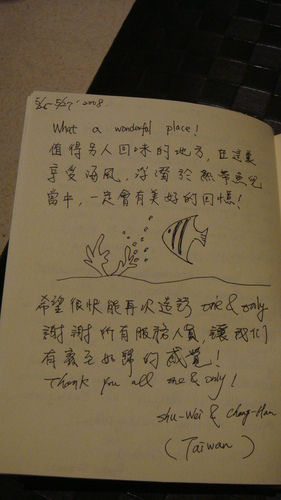 5/25-5/27, 2008
What a wonderful place!
值得另人回味的地方，在這裏
享受海風，浮潛於熱帶魚兒
當中，一定會有美好的回憶！
希望很快能再次造訪 one & only
謝謝所有服務人員，讓我們
有賓至如歸的感覺！
Thank you all one & only!
Shu-Wei & Chung-Han
(Taiwan)